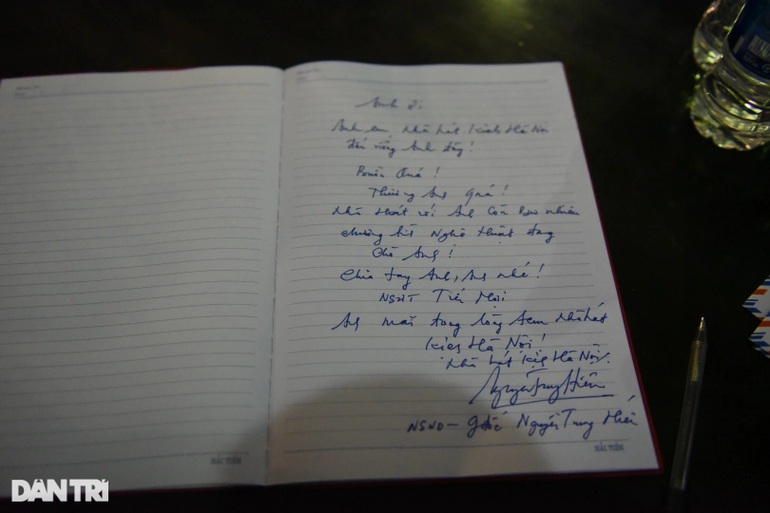 Anh ơi
Anh em Nhà hát Kịch Hà Nội
đến viếng Anh đây!
Buồn Quá!
Thương Anh Quá!
Nhà Hát với Anh Còn bao nhiêu
chương trình Nghệ thuật đang
Chờ Anh!
Chia tay Anh, Anh nhé!
NSƯT Tiến Mợi
Anh mãi trong lòng Nhà hát
Kịch Hà Nội!
Nhà hát Kịch Hà Nội.
NSND - Gđốc Nguyễn Trung Hiếu
HẢI TIẾN
HẢI TIẾN
DÂN TRÍ